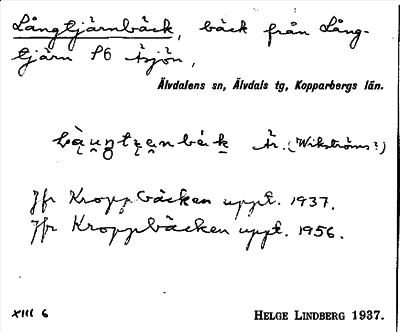 Långtjärnbäck, bäck från Lång-
tjärn SÖ Åsjön,
Älvdalens sn, Älvdals tg, Kopparbergs län.
Är. (Wikströms?)
Jfr Kroppbäcken uppt. 1937.
Jfr Kroppbäcken uppt. 1956.
XIII 6
HELGE LINDBERG 1937.